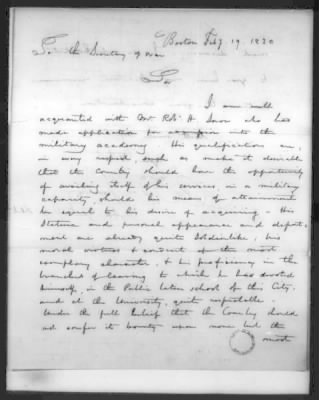 Boston Feby 19 1820
To the Secretary of War
Sir
I am well
acquainted with Mr Robt H. who has
made application for admission into the
military academy His qualifications are,
in every respect, such as make it desirable
that the Country should have the opportunity
of availing itself of his services, in a military
capacity, should his means of attainment
be equal to his desire of acquiring - His
stature and personal appearance and deport-
ment are already quite soldierlike, his
moral and conduct are of the most
exemplary character, & his proficiency in the
branches of learning to which he has devoted
himself, in the Public Latin school of this City,
and at the University, quite respectable.
Under the full belief that the Country should
not confer its bounty upon none but the
most